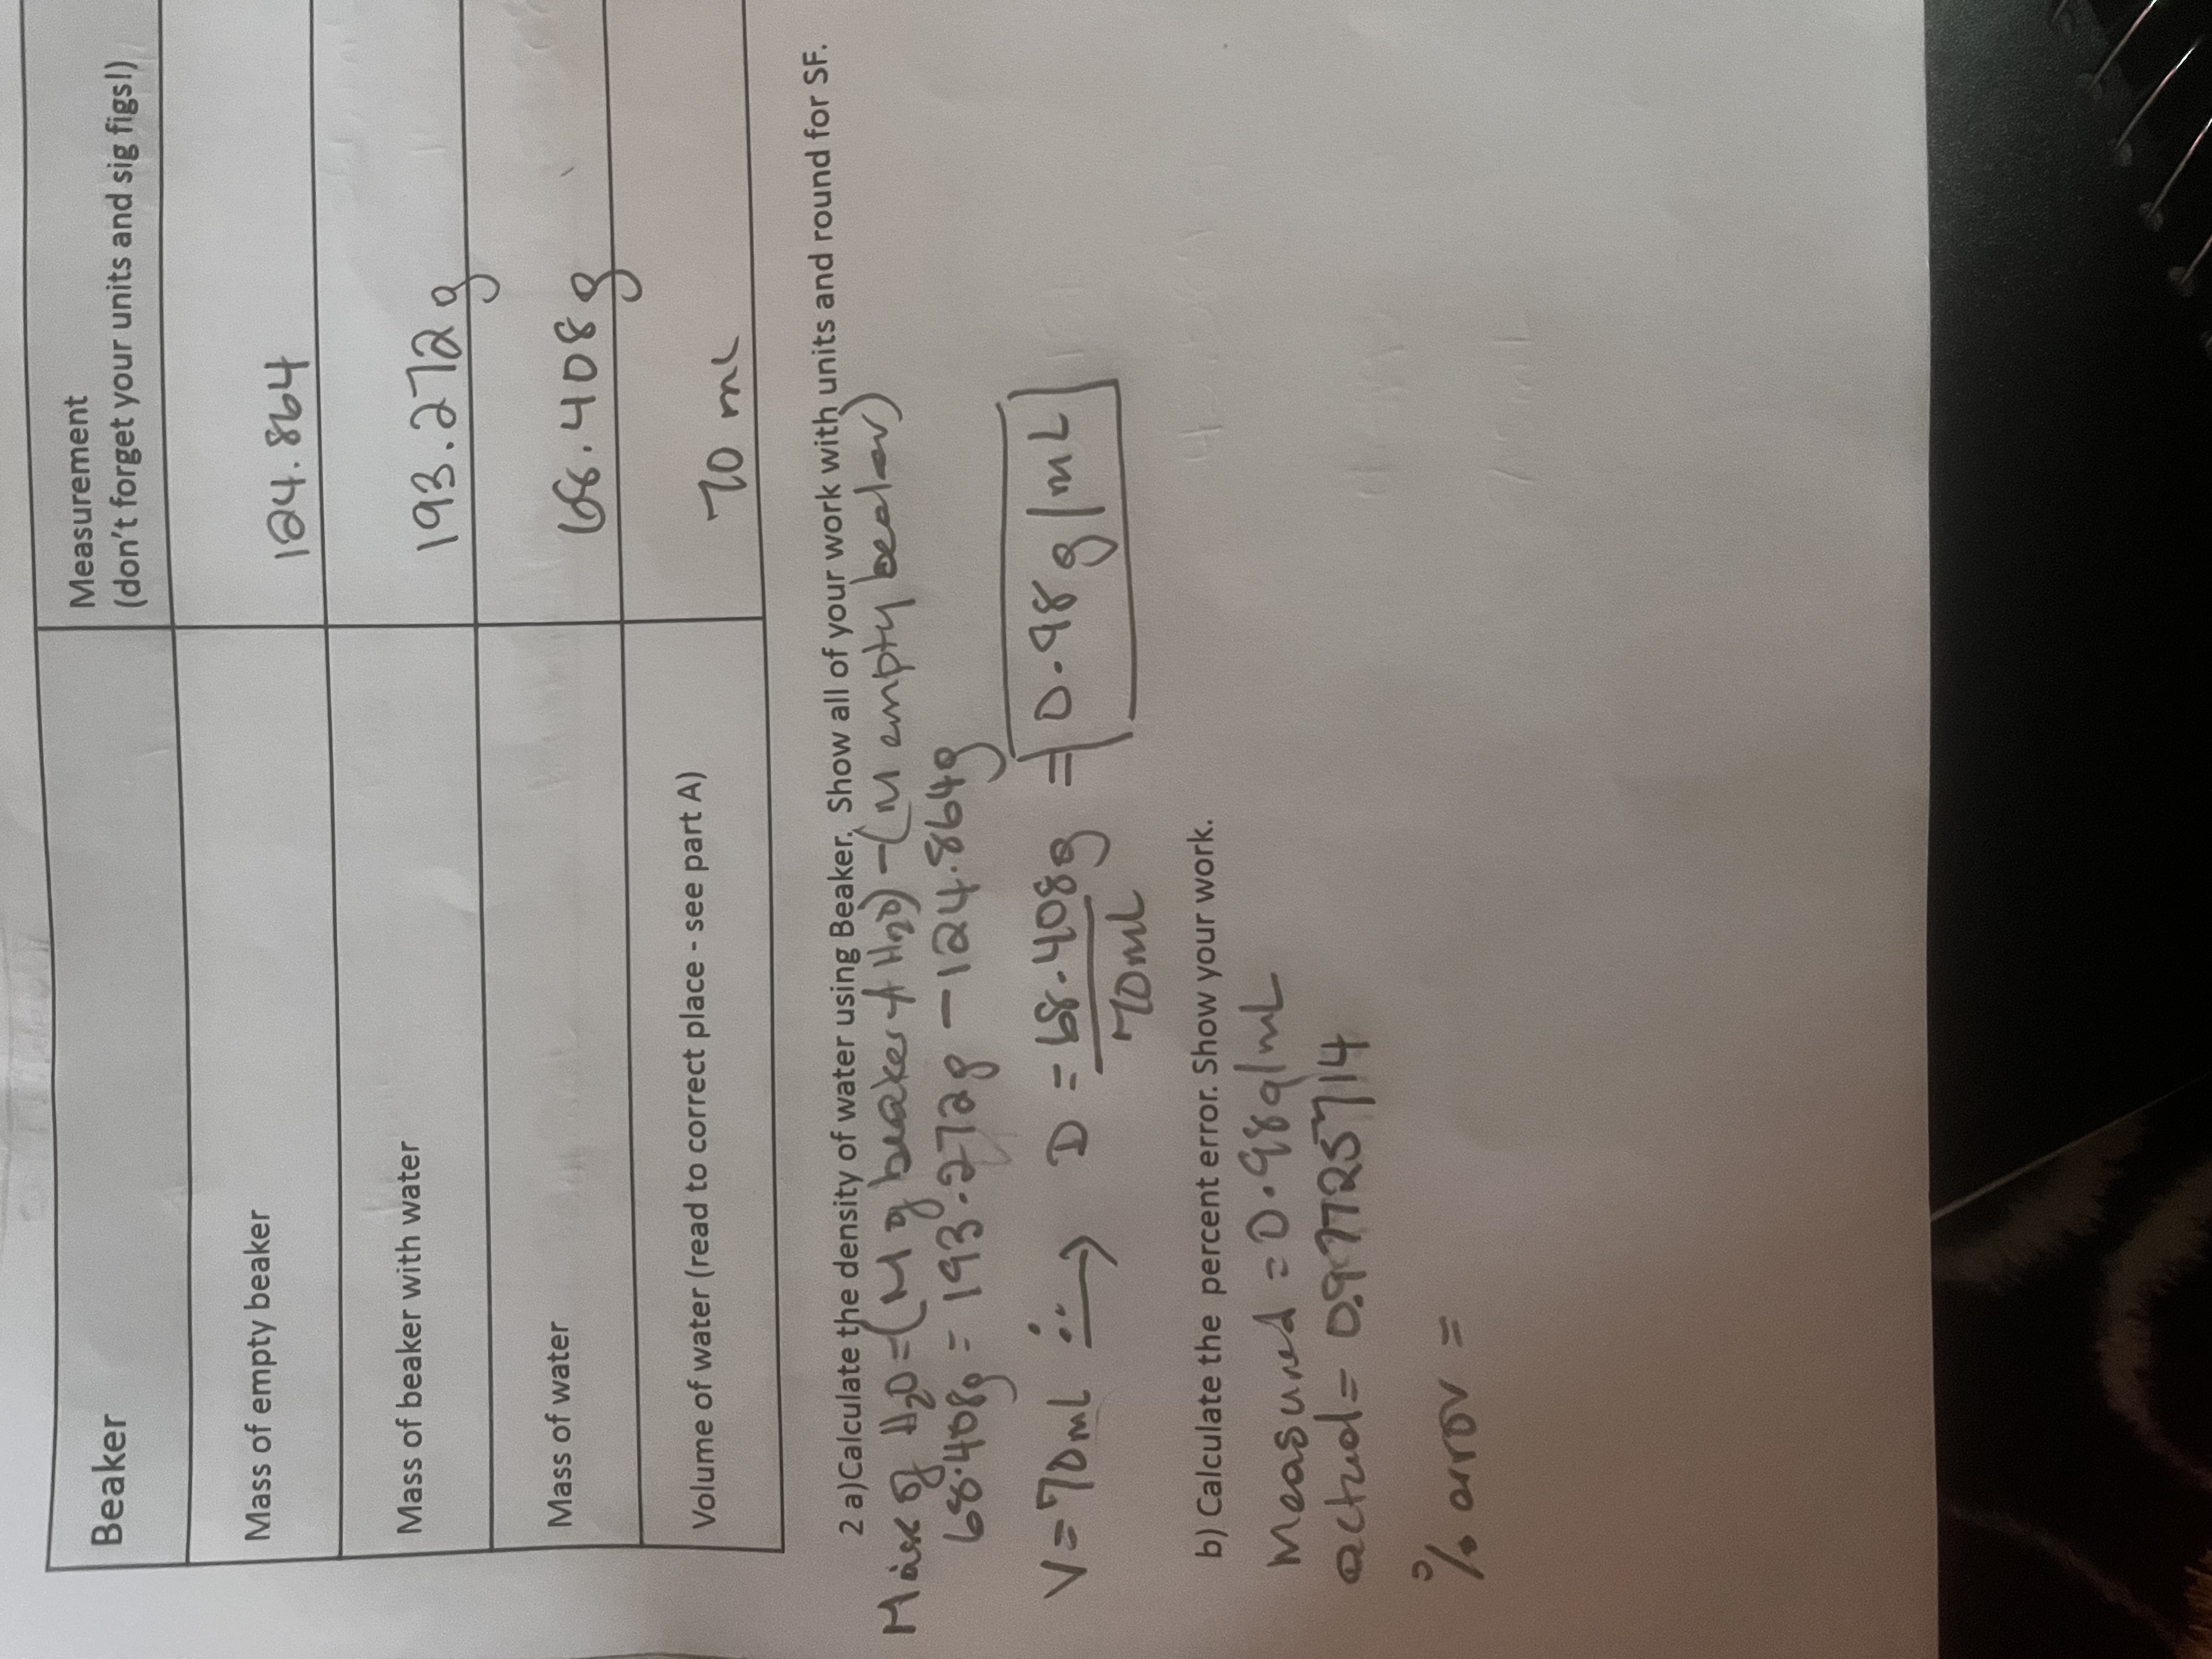 Beaker
Measurement
(don't forget your units and sig figs!)
Mass of empty beaker
124.864
Mass of beaker with water
193.272g
Mass of water
68.408g
Volume of water (read to correct place - see part A)
70 mL
2 a)Calculate the density of water using Beaker. Show all of your work with units and round for SF.
Mass of H2O=(M of beaker + H2O)-(M empty beaker)
68.408g = 193.272g - 124.864g
V=70mL ∴→ D = 68.408g = 0.98g/mL
70mL
b) Calculate the percent error. Show your work.
Measured = 0.98g/mL
actual= 0.97725714
% error =